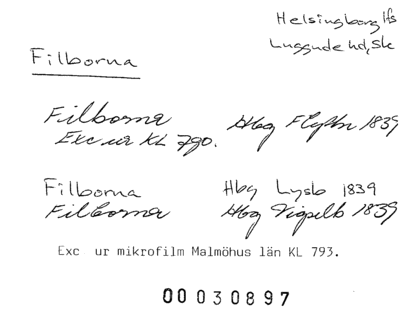 Helsingborg lfs
Luggude hd, Sk
Filborna
Filborna Hbg Flyttn 1839
Exc ur KL 790.
Filborna Hbg Lysb 1839
Filborna Hbg Vigselb 1839
Exc ur mikrofilm Malmöhus län KL 793.
00030897